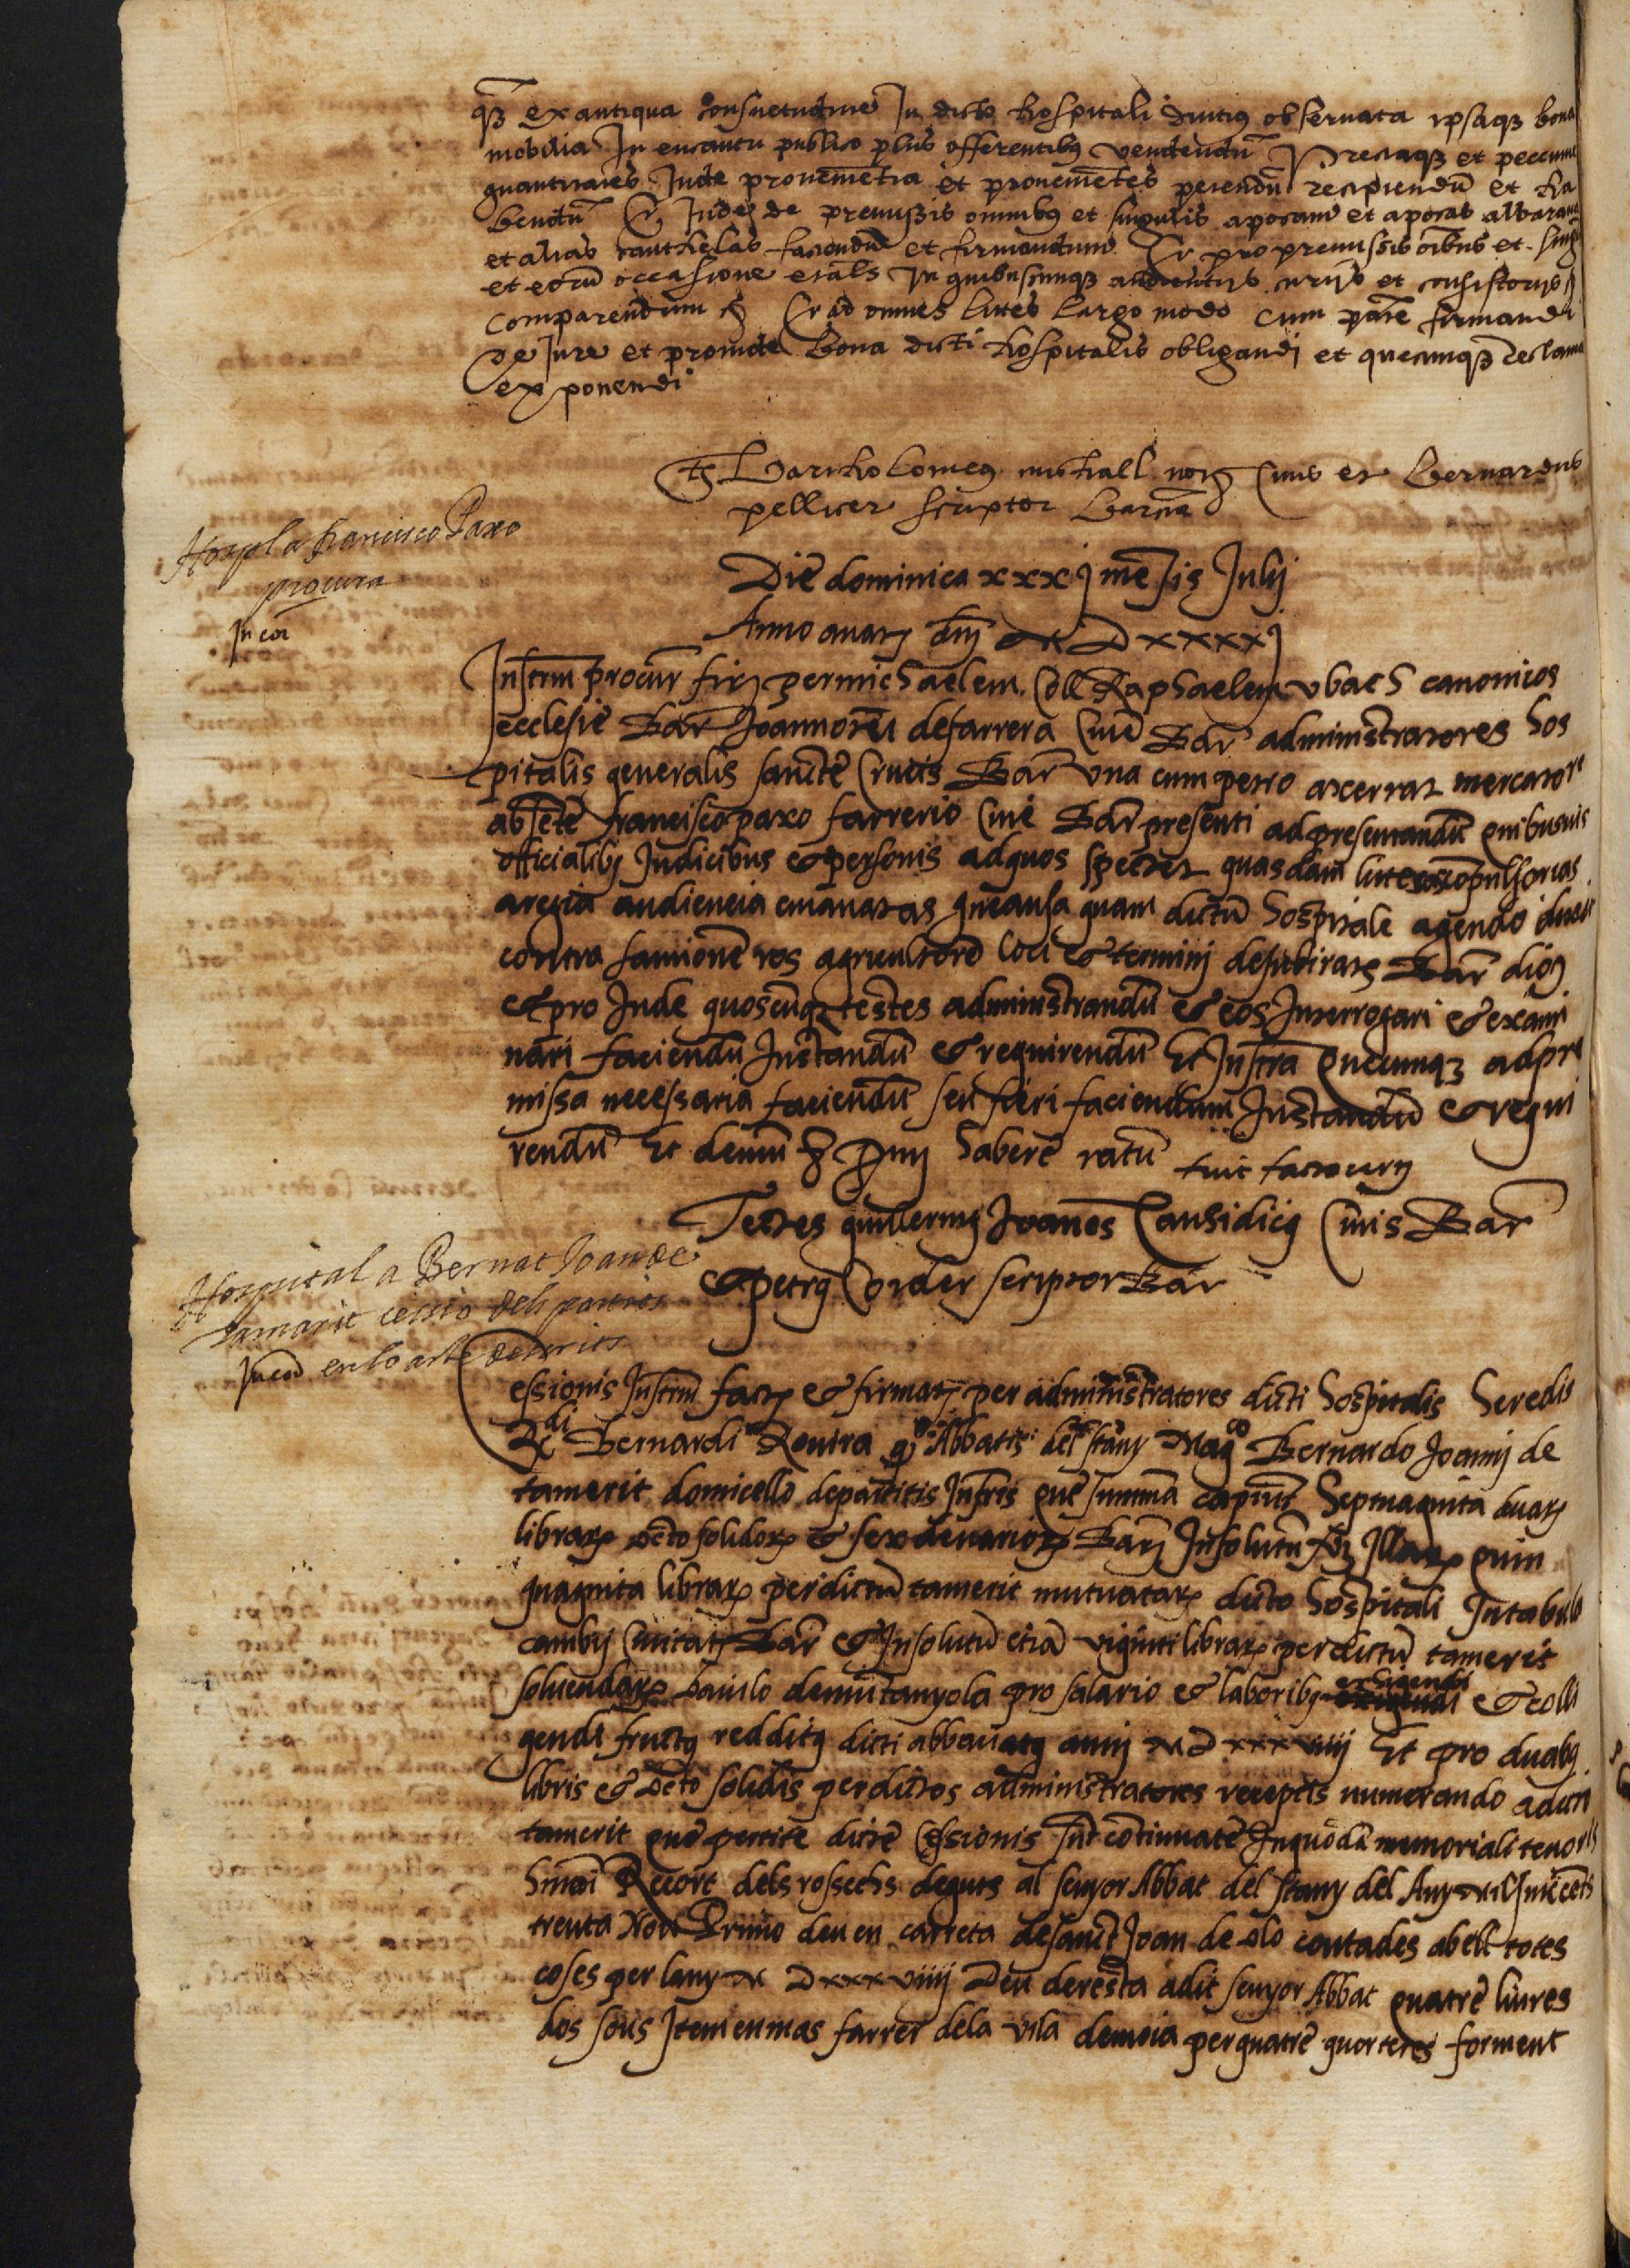 q3 ex antiqua consuetudine In dicto hospitali diutius observata ipsaq3 bona
mobilia In encantu publico plus offerentibus vendendu Preciaq3 et peccunie
quantitates Inde provenientia et provenientes petendu recipiendu et ha
bendu Et Inde de premissis omnibus et singulis apocam et apocas albarana
et alias cauthelas faciendu et firmandum Et pro premissis oibus et singu
et eoru occasione et als In quibuscumq3 audientijs curijs et consistorijs
Comparendum Et ad omnes lites largo modo cum prate firmandi
de Jure et proinde bona dicti hospitalis obligandi et quecumq3 reclama
exponendi
Ts Bartholomeus mirall not civis et Bernardus
pellicer scriptor Barne
Hospl a francisco Paxo
procura
In cor
Die dominica xxxj mesis Julij
Anno a nat dnj M D xxxxj
Instrm procur fir per micHaelem Coll RapHaelem vbacH canonicos
ecclesie Bar Joannotu desarrera Cive Bar administratores Hos
pitalis generalis sancte Crucis Bar vna cum petro axerrat mercatore
absete francisco paxo farrerio Cive Bar presenti ad presentandu quibusvis
officialib3 Judicibus & personis ad quos spectet quasdam litteras copulsorias
a regia audiencia emanatas In causa quam dictu Hospitale agendo ducit
contra samione ros agricultore loci & terminj desubirats Bar dio
& pro Inde quoscuq3 testes administrandu & eos Interrogari & exami
nari faciendu Instandu & requirendu Et Instra quecumq3 ad pre
missa necessaria faciendu seu fieri faciendum Instandu & requi
rendu Et demu Habere ratu fuit factu
Testes guillermus Joanes Causidicus Civis Bar
& petrus Corder scriptor Bar
Hospital a Bernat Joan de
tamarit cessio dels partits
In cor en lo arte
Cessionis Instrm fact & firmat per administratores dicti Hospitalis Heredis
Rdi Bernardi Rovira q° Abbatis del stany Magco Bernardo Joannj de
tamerit domicello de partitis Infris que summa capiut Septuaginta duar
librar octo solidor & sex denarior Bar Insolutu illar quin
quaginta librar per dictu tamerit mutuatar dicto Hospitali In tabula
cambij Civitat Bar & Insolutu etia viginti librar per dictu tamerit
solvendar baiulo de muntanyola pro salario & laborib3 exigendi exHigendi & colli
gendi fructus redditus dicti abbatiatus annj M D xxxviiij Et pro duab3
libris & octo solidis per dictos administratores receptis numerando a dicto
tamerit que partite dicte Cessionis sut continuate In quoda memoriali tenoris
Hmoi Recort dels rossechs deguts al senyor Abbat del stany del Any Mil Sinccents
trenta Nou Primo deu en carreta de sanct Joan de olo contades ab ell totes
coses per lany M D xxxviiij Deu de resta a dit senyor Abbat quatre liures
dos sous Item en mas farrer de la vila de moia per quatre quorteres forment